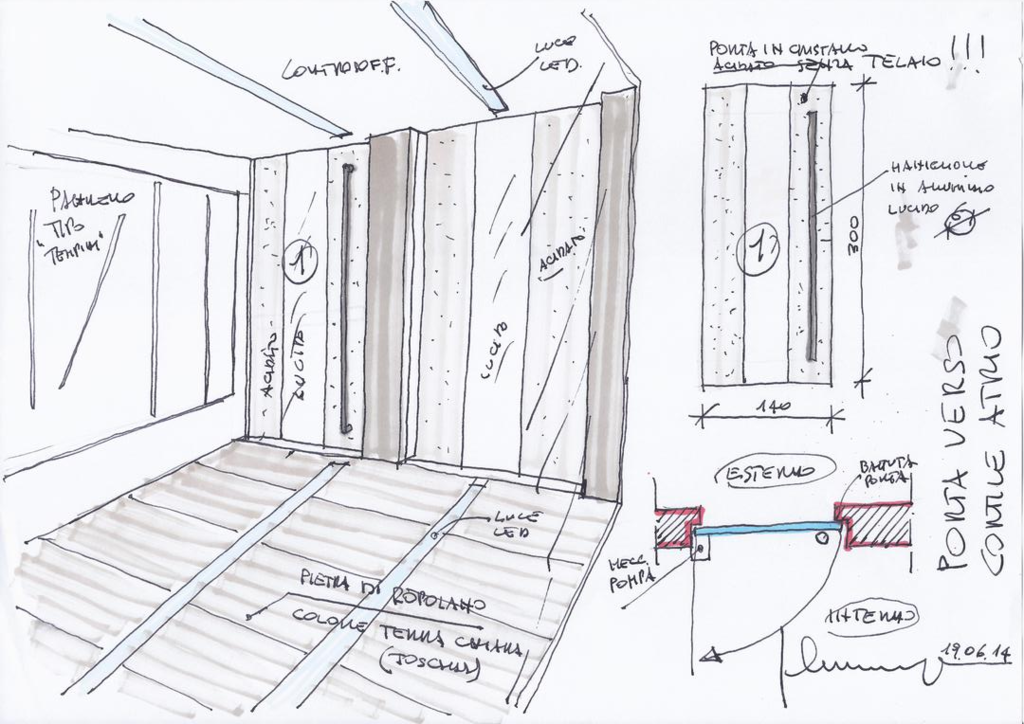 CONTROSOFF.
LUCE
LED.
TIPO
1
ACIDATO
LUCIDO
LUCIDO
ACIDATO
LUCE
LED
PIETRA DI RAPOLANO
COLORE TERRA CHIARA
(TOSCANA)
PORTA IN CRISTALLO
ACIDATO SENZA TELAIO !!!
1
MANIGLIONE
IN ALLUMINIO
LUCIDO
300
140
PORTA VERSO
CORTILE ATRIO
ESTERNO
BATTUTA
PORTA
MECC.
POMPA
INTERNO
19.06.14